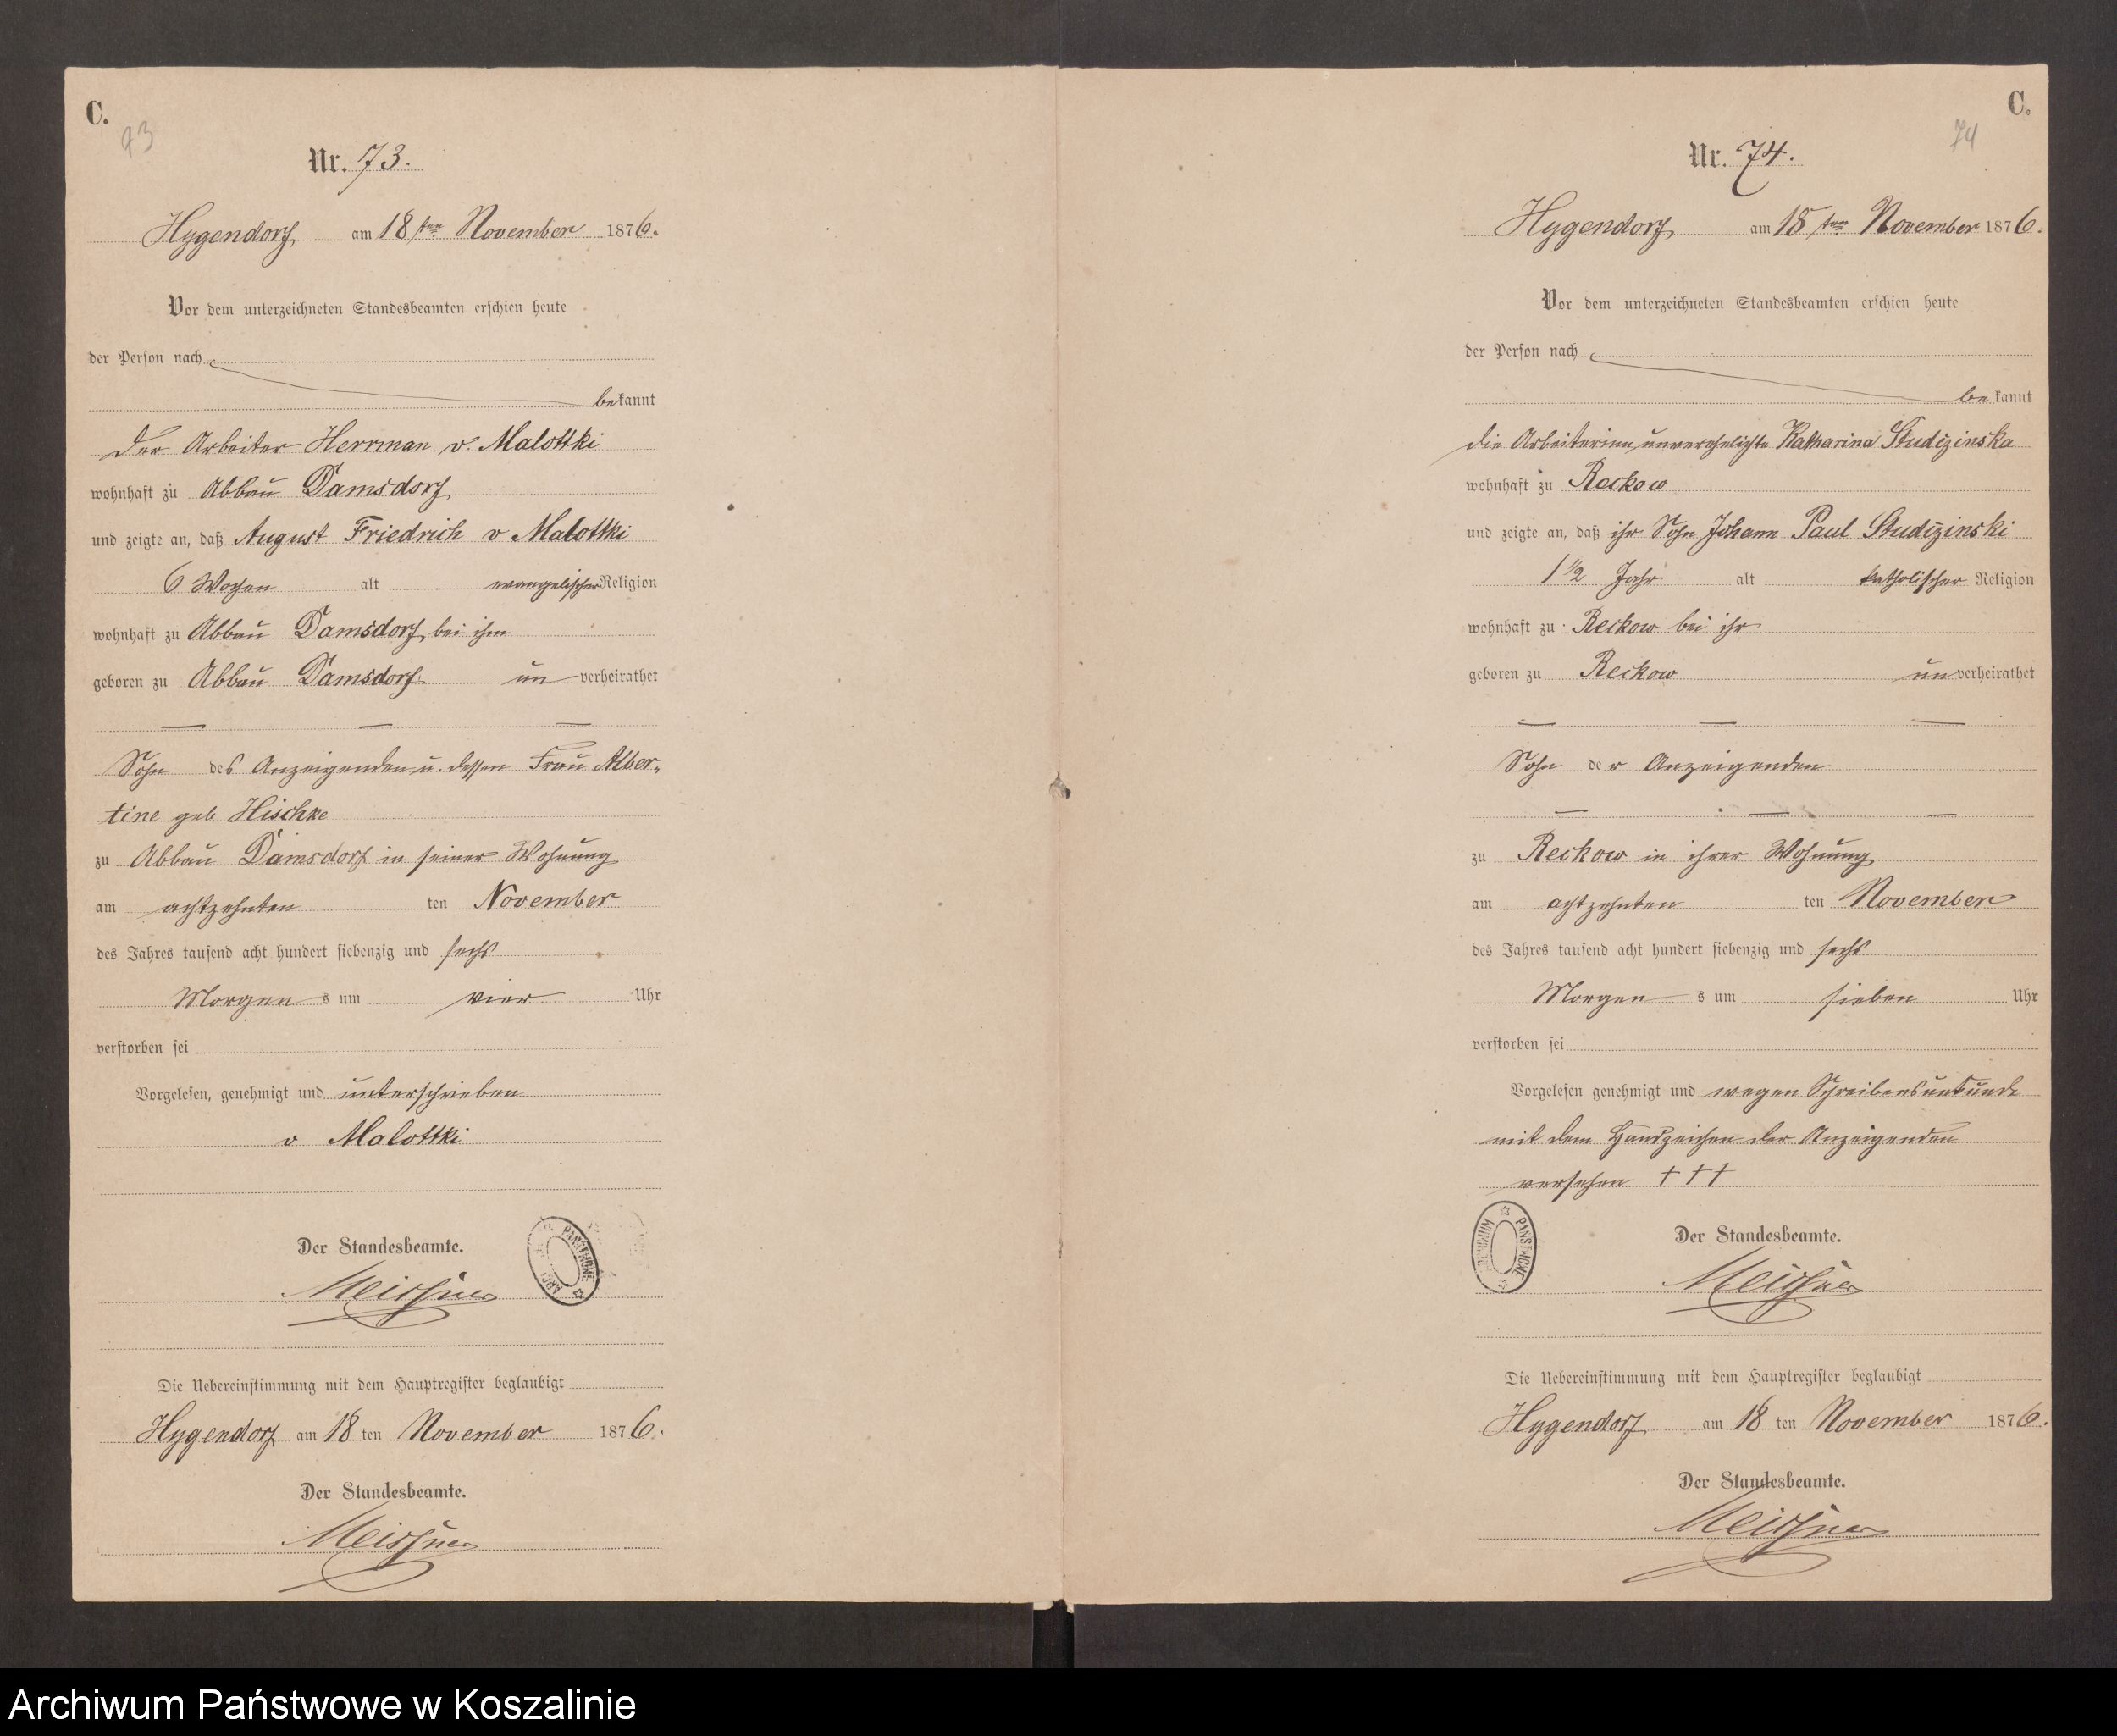 C.
73
Nr. 73.
Hygendorf am 18ten November 1876.
Vor dem unterzeichneten Standesbeamten erschien heute
der Person nach
bekannt
der Arbeiter Herrman v. Malottki
wohnhaft zu Abbau Damsdorf
und zeigte an, daß August Friedrich v Malottki
6 Wochen alt evangelischer Religion
wohnhaft zu Abbau Damsdorf bei ihm
geboren zu Abbau Damsdorf unverheirathet
— — —
Sohn des Anzeigenden u. dessen Frau Alber-
tine geb Hischke
zu Abbau Damsdorf in seiner Wohnung
am achtzehnten ten November
des Jahres tausend acht hundert siebenzig und sechs
Morgens um vier Uhr
verstorben sei
Vorgelesen, genehmigt und unterschrieben
v Malottki
Der Standesbeamte.
Meissner
Die Uebereinstimmung mit dem Hauptregister beglaubigt
Hygendorf am 18ten November 1876.
Der Standesbeamte.
Meissner
C.
74
Nr. 74.
Hygendorf am 18ten November 1876.
Vor dem unterzeichneten Standesbeamten erschien heute
der Person nach
bekannt
die Arbeiterinn, unverehelichte Katharina Studizinska
wohnhaft zu Reckow
und zeigte an, daß ihr Sohn Johann Paul Studizinski
1 1/2 Jahr alt katholischer Religion
wohnhaft zu Reckow bei ihr
geboren zu Reckow unverheirathet
— — —
Sohn der Anzeigenden
— — —
zu Reckow in ihrer Wohnung
am achtzehnten ten November
des Jahres tausend acht hundert siebenzig und sechs
Morgens um sieben Uhr
verstorben sei
Vorgelesen genehmigt und wegen Schreibensunkunde
mit dem Handzeichen der Anzeigenden
versehen + + +
PANSTWOWE
Der Standesbeamte.
Meissner
Die Uebereinstimmung mit dem Hauptregister beglaubigt
Hygendorf am 18 ten November 1876.
Der Standesbeamte.
Meissner
Archiwum Państwowe w Koszalinie